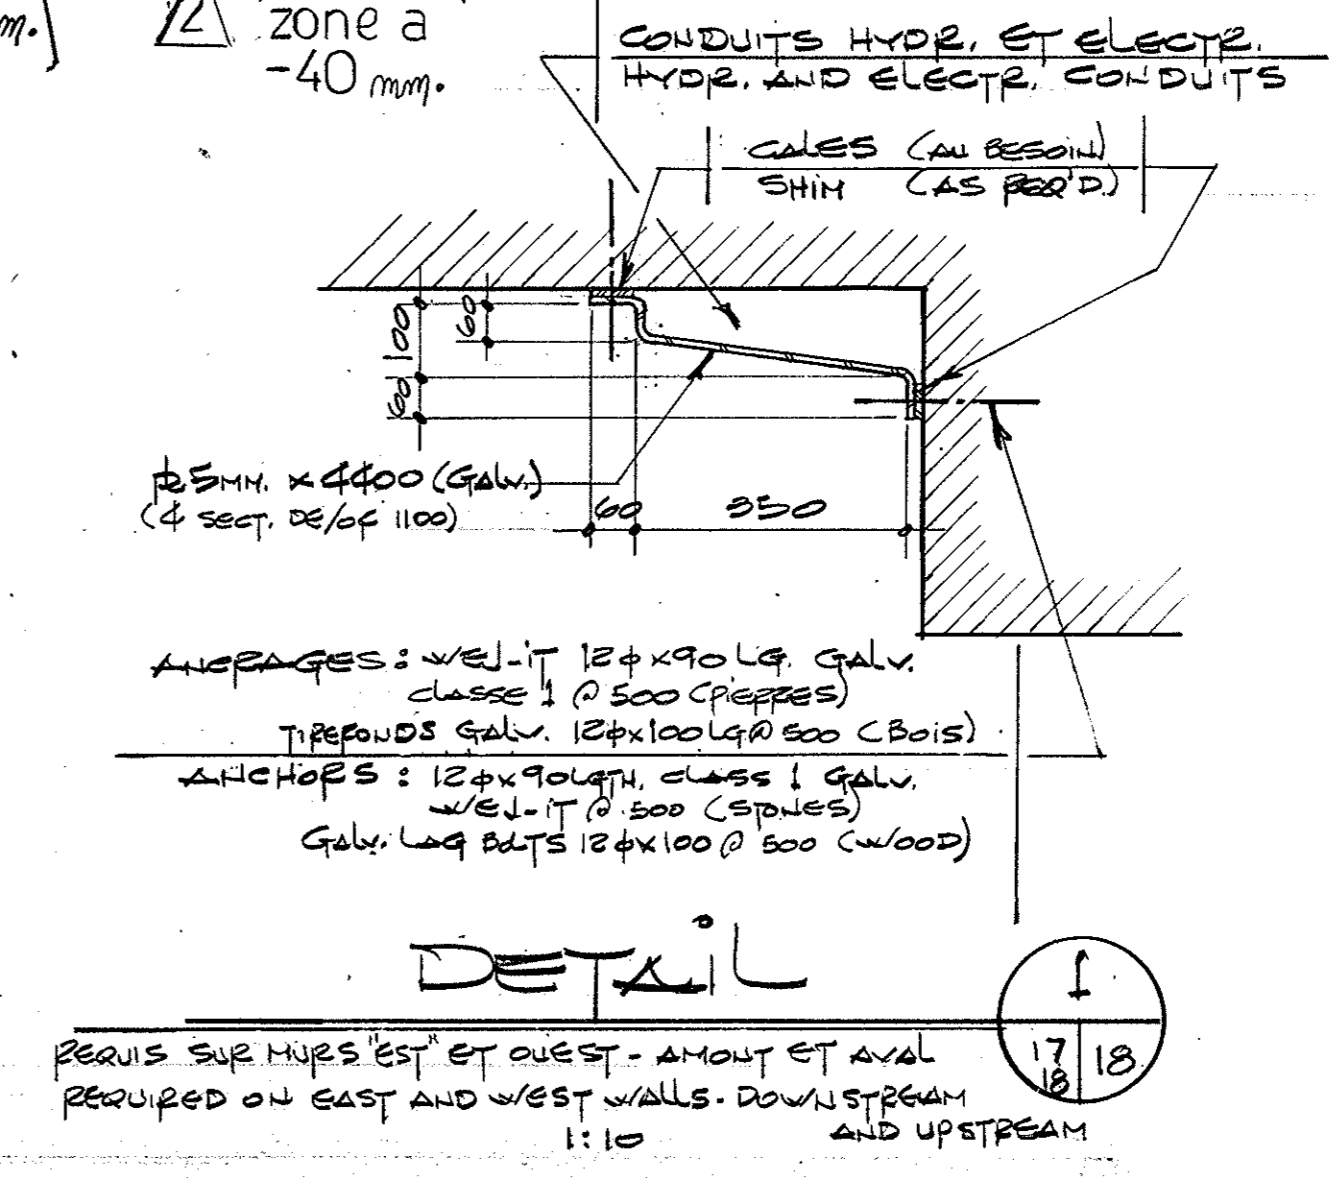 m.]
2 zone a
-40 mm.
CONDUITS HYDR. ET ELECTR.
HYDR. AND ELECTR. CONDUITS
CALES (AU BESOIN)
SHIM (AS REQ'D.)
100
60
60
℄ 5MM. x 4400 (GALV.)
(4 SECT. DE/OF 1100)
60 350
ANCRAGES : WEJ-IT 12ϕx90 LG. GALV.
CLASSE 1 @ 500 (PIERRES)
TIREFONDS GALV. 12ϕx100 LG @ 500 (BOIS)
ANCHORS : 12ϕx90LGTH. CLASS 1 GALV.
WEJ-IT @ 500 (STONES)
GALV. LAG BOLTS 12ϕx100 @ 500 (WOOD)
DETAIL
1
17
18
18
REQUIS SUR MURS "EST" ET OUEST - AMONT ET AVAL
REQUIRED ON EAST AND WEST WALLS - DOWNSTREAM
AND UPSTREAM
1:10